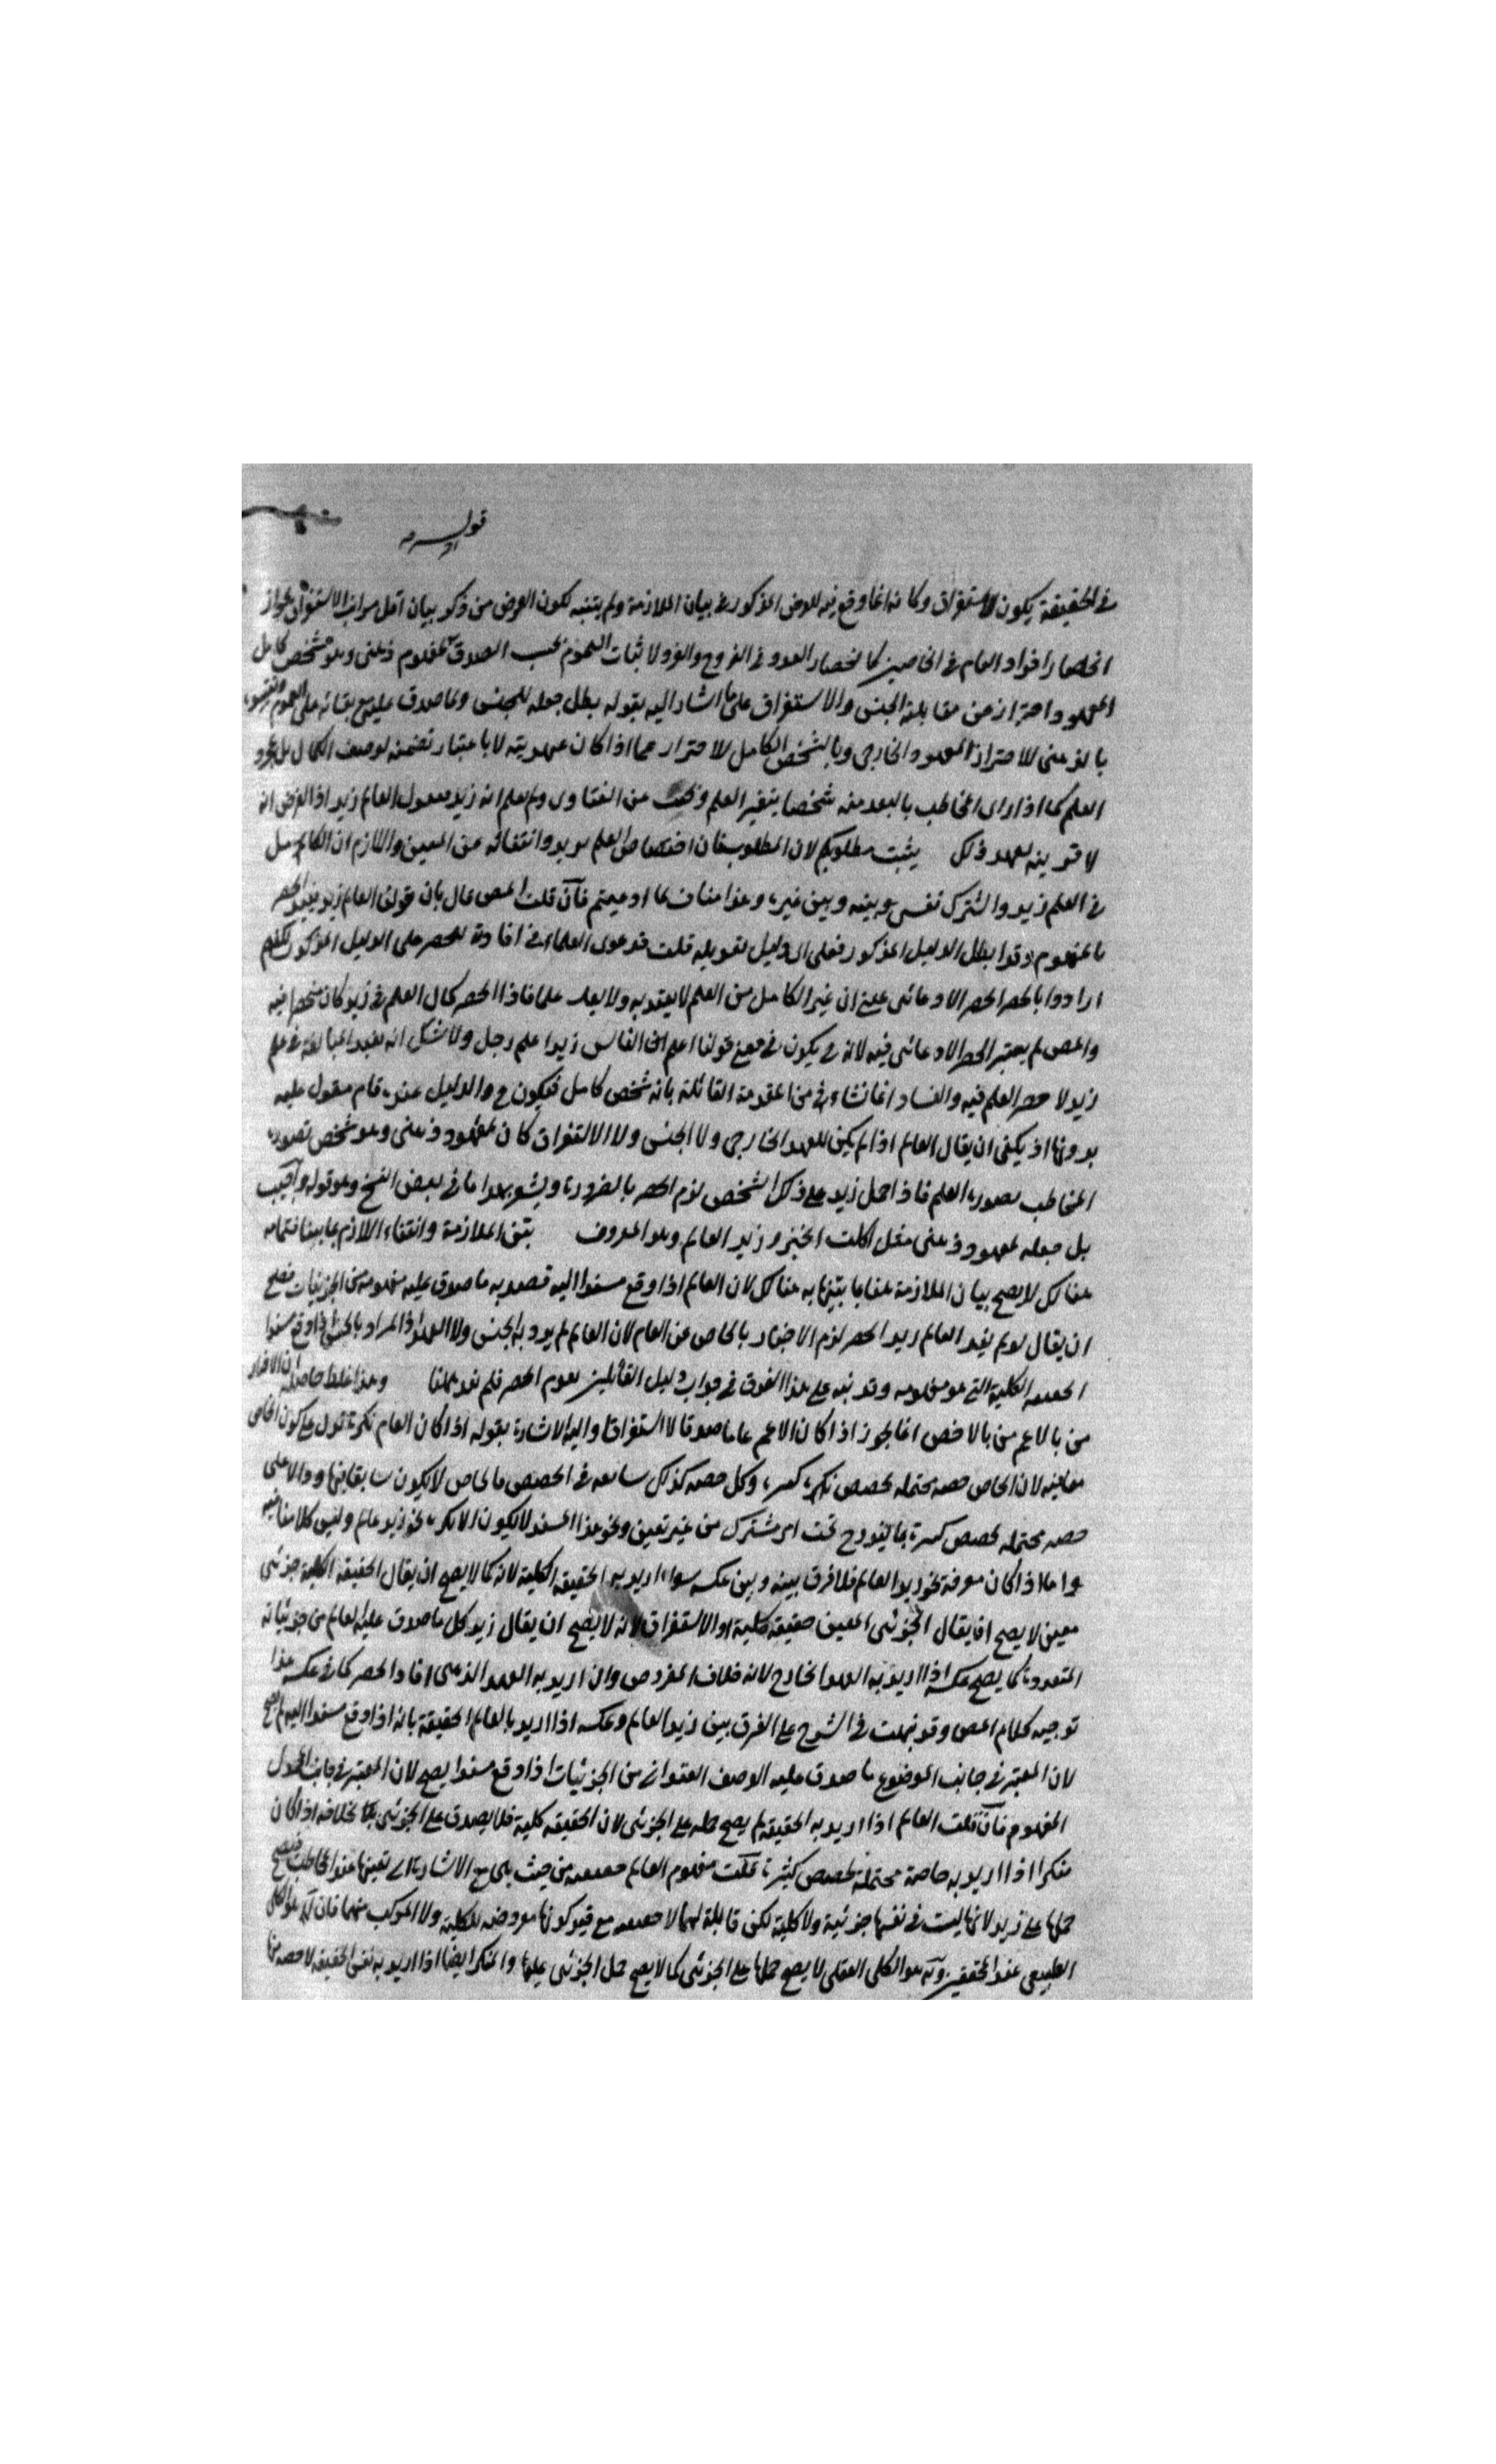 قوله
في الحقيقة يكون للاستغراق وكانه انما وقع فيه للعوض المذكور في بيان الملازمة ولم يتنبه لكون الغرض من ذكر بيان اقل مراتب الاستغراق بجواز
انحصار افراد العام في الخاصين كانحصار العدد في الزوج والفرد لا ثبات العموم بحسب الصدق لمفهوم ذهني وهو شخص كامل
المعهود احتراز من مقابلة الجنس والاستغراق على ما اشار اليه بقوله بطل جعله للجنس وما صدق عليه مع بقائه على العموم
بالذهني للاحتراز المعهود الخارجي وبالشخص الكامل للاحتراز عما اذا كان معهوديته لا باعتبار تضمنه لوصف الكمال بل بمجرد
العلم كما اذا راى المخاطب بالبعد منه شخصا من الفتاوى ولم يعلم انه زيد فيقول العالم زيد اذ الفرض انه
لا قرينة لعهد ذلك يثبت مطلوبكم لان المطلوب كان اختصاص العلم بزيد وانتفائه عن المعين واللازم ان الكامل
في العلم زيد واشترك نفسه بينه وبين غيره وهذا مناف لما ادعيتم فان قلت المص قال بان قولنا العالم زيد يفيد الحصر
بالمفهوم وقد ابطل الدليل المذكور فعلى اى دليل تعويله قلت دعوى العلماء في افادة الحصر على الدليل المذكور لكنهم
ارادوا بالحصر الحصر الادعائى على ان غير الكامل من العلم لا يعتد به ولا يعد علما فاذا انحصر كمال العلم في زيد كان منحصرا فيه
والمص لم يعتبر الحصر الادعائى فيه لانه ح يكون في معنى قولنا اعلم الناس زيد اعلم رجل ولا شك انه يفيد المبالغة في علم
زيد لا حصر العلم فيه والفساد انما نشاء من المقدمة القائلة بانه شخص كامل فيكون ح والدليل عنده تام مقول عليه
بدونها اذ يكفى ان يقال العالم اذا لم يكن للعهد الخارجى ولا الجنس ولا الاستغراق كان لمعهود ذهنى وهو شخص تصوره
المخاطب بصورة العلم فاذا حمل زيد على ذلك الشخص لزم الحصر بالضرورة ويشعر بهذا ما في بعض النسخ وهو قوله واجيب
بل جعله لمعهود ذهنى مثل اكلت الخبز وزيد العالم وهو المعروف بتبين الملازمة وانتفاء اللازم بما بينا تمامه
هناك لا يصح بيان الملازمة هنا بما بينها به هناك لان العالم اذا وقع مسندا اليه قصد به ما صدق عليه مفهومه من الجزئيات فصح
ان يقال لو لم يفد العالم زيد الحصر لزم الاخبار بالخاص عن العام لان العالم لم يرد به الجنس ولا العهد اذ المراد بالجنس اذا وقع مسندا
الحقيقة الكلية التي هو مفهومه وقد نبه على هذا الفرق في جواب دليل القائلين بعدم الحصر فلم نعد ههنا وهذا غلط حاصله ان الاخبار
من بالاعم من بالاخص انما يجوز اذا كان الاعم عاما صدقا لا استغراقا واليه الاشارة بقوله اذا كان العام نكرة تدل على كون الخاص
لان الخاص حصة محتملة لحصص كثيرة وكل حصة كذلك في الحصص ما لخاص لا يكون
حصة محتملة لحصص كثيرة بما يندرج تحت امر مشترك من غير تعين ونحو هذا المسند لا يكون الا نكرة نحو زيد عالم وليس كلامنا فيه
واما اذا كان معرفة نحو زيد العالم فلا فرق بينه وبين عكسه سواء اريد به الحقيقة الكلية لانه كما لا يصح ان يقال الحقيقة الكلية جزئى
معين لا يصح ان يقال الجزئى المعين حقيقة كلية او الاستغراق لانه لا يصح ان يقال زيد كل ما صدق عليه العالم من جزئياته
المتعددة كما يصح عكسه اذا اريد به العهد الخارج لانه خلاف المفروض وان اريد به العهد الذهنى افاد الحصر كما في عكسه هذا
توجيه كلام المص وقد نبهت في الشرح على الفرق بين زيد العالم وعكسه اذا اريد بالعالم الحقيقة بانه اذا وقع مسندا اليه لم يصح
لان المعتبر في جانب الموضوع ما صدق عليه الوصف العنوانى من الجزئيات اذا وقع مسندا يصح لان المعتبر في جانب المحمول
المفهوم فان قلت العالم اذا اريد به الحقيقة لم يصح حمله على الجزئى لان الحقيقة كلية فلا يصدق على الجزئى بخلافه اذا كان
منكرا اذا اريد به حصة محتملة لحصص كثيرة قلت مفهوم العالم حقيقة من حيث هى مع الاشارة الى تعينها عند المخاطب فيصح
حملها على زيد لانها ليست في نفسها جزئية ولا كلية لكن قابلة لهما لا حقيقة مع قيد كونها معروضة للكلية ولا المركب منهما فان هو الكلى
الطبيعى عند المحققين هو الكلى العقلى لا يصح حملها على الجزئى كما لا يصح حمل الجزئى عليها والمنكر ايضا اذا اريد به نفس الحقيقة لا حصة منها